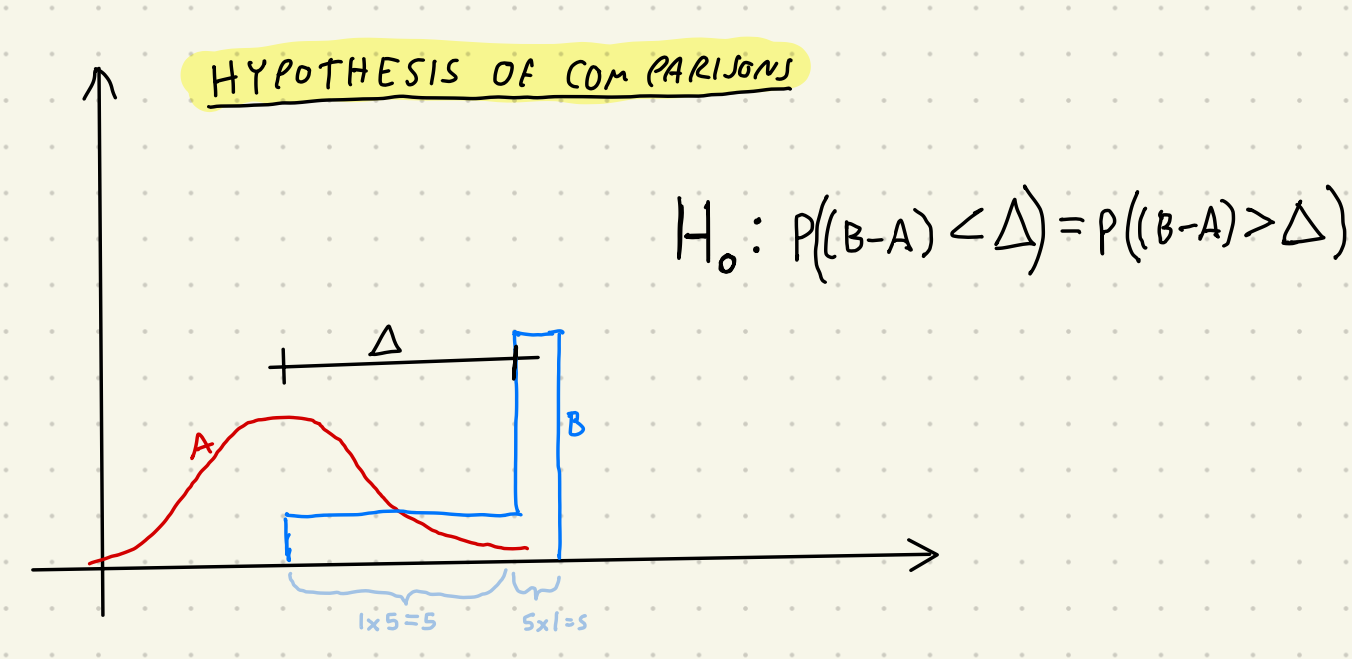 HYPOTHESIS OF COMPARISONS
H₀: P((B-A) < Δ) = P((B-A) > Δ)
Δ
A
B
1x5=5
5x1=5